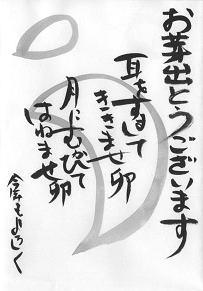 お芽出とうございます
耳をすまして
きゝませ卯
月にむかって
はねませ卯
今年もよろしく